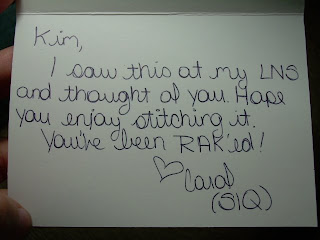 Kim,
I saw this at my LNS
and thought of you. Hope
you enjoy stitching it.
You've been RAK'ed!
♡ Carol
(SIQ)